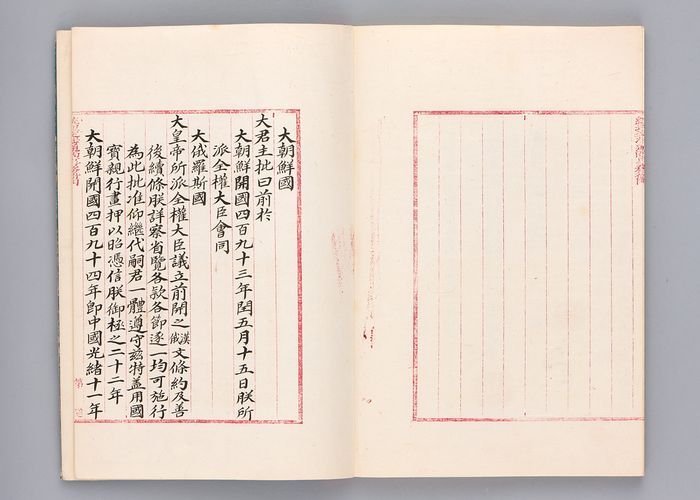 大朝鮮國
大君主批曰前於
大朝鮮開國四百九十三年閏五月十五日朕所
派全權大臣會同
大俄羅斯國
大皇帝所派全權大臣議立前開之漢俄文條約及善
後續條朕詳察省覽各款各節逐一均可施行
為此批准仰繼代嗣君一體遵守玆特盖用國
寶親行畫押以昭憑信朕御極之二十二年
大朝鮮開國四百九十四年卽中國光緖十一年
第